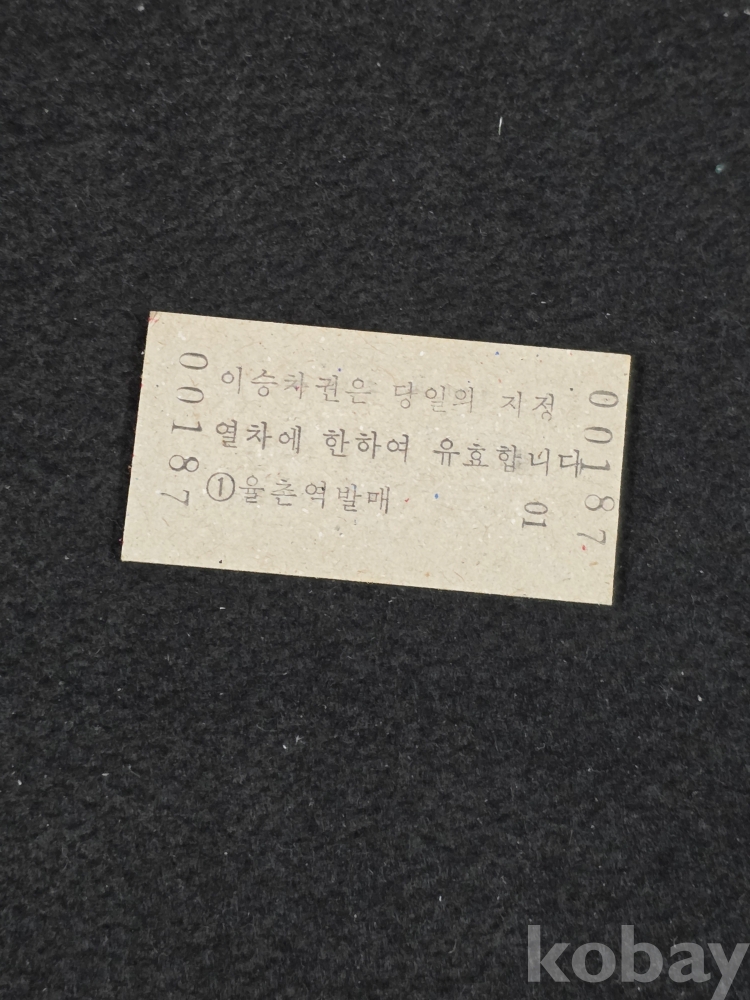 이승차권은 당일의 지정
열차에 한하여 유효합니다
①율촌역발매
01
00187
00187
kobay